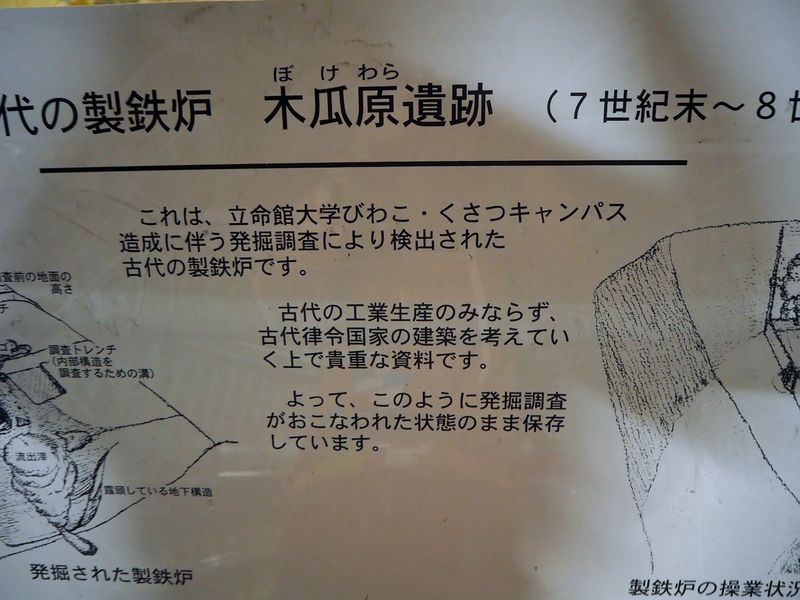 ぼけわら
代の製鉄炉 木瓜原遺跡 (7世紀末～8世
これは、立命館大学びわこ・くさつキャンパス
造成に伴う発掘調査により検出された
古代の製鉄炉です。
古代の工業生産のみならず、
古代律令国家の建築を考えてい
く上で貴重な資料です。
よって、このように発掘調査
がおこなわれた状態のまま保存
しています。
査前の地面の
高さ
チ
調査トレンチ
(内部構造を
調査するための溝)
流出滓
露頭している地下構造
発掘された製鉄炉
製鉄炉の操業状況